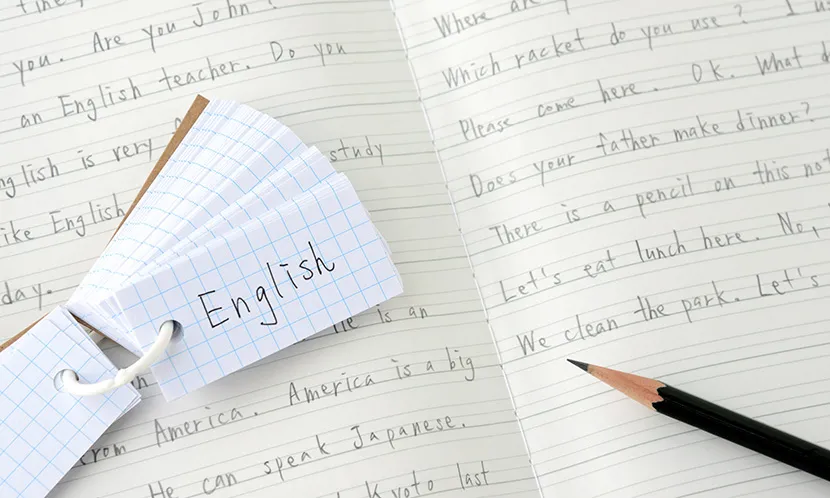 you. Are you John?
an English teacher. Do you
English is very
study
like English
day.
English
He is an
from America. America is a big
He can speak Japanese.
Kyoto last
Where are
Which racket do you use? I
Please come here. OK. What
Does your father make dinner?
There is a pencil on this
Let's eat lunch here. No,
We clean the park. Let's